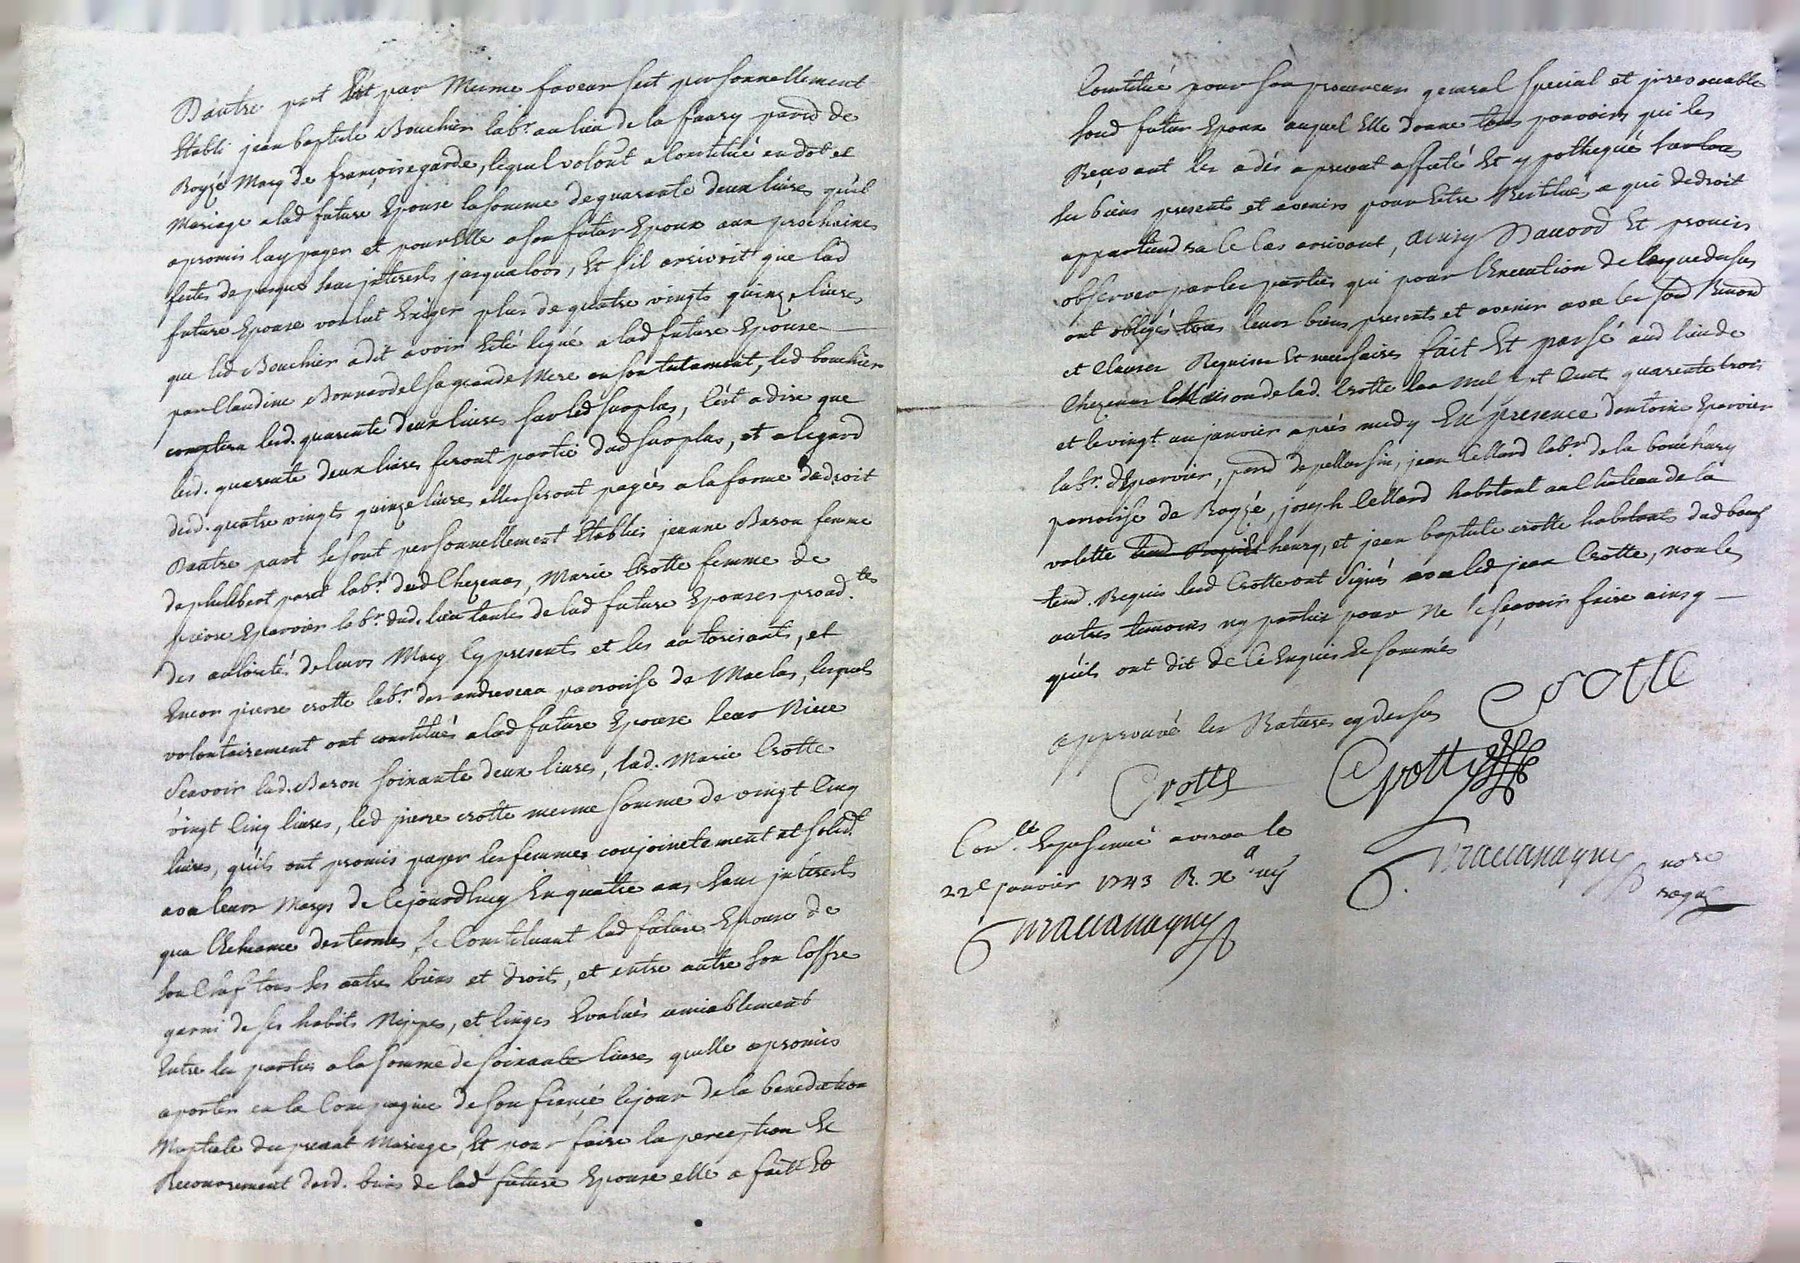 D'autre part Et par Meme faveur sest personnellement
Etabli jean baptiste Bouchier labr. au lieu de la faury paroid de
Royzé Mary de françoise garde, lequel volont a Constitué en dot et
Mariage alad future Epouse la somme de quarante deux livres qu'il
a promis luy payer et pour Elle a son futur Epoux aux prochaines
festes de paques sans jnterests jusqualors, Et s'il arrivoit que lad
future Epouse voulut Exiger plus de quatre vingts quinze livres
que led Bouchier a dit avoir Eté legué a lad future Epouse
par Claudine Bonnardel sa grande Mere en son testament, led bouchier
comptera lesd. quarente deux livres sur led surplus, C'est a dire que
lesd. quarente deux livres feront partie dud surplus, et a legard
desd. quatre vingts quinze livres elles seront payées a la forme de droit
Dautre part se sont personnellement Etablies jeanne Baron femme
de philibert poret labr. dud Chezenas, Marie Crotte femme de
pierre Eparvier labr. dud. lieu tantes de lad future Epouse proad.tes
des autorités de leurs Marys Cy presents et les autorisants, et
Encor pierre crotte labr. des andrevaux parroisse de Maclas, lesquels
volontairement ont constitués a lad future Epouse leur Niece
Scavoir lad. Baron soixante deux livres, lad. Marie Crotte
vingt Cinq livres, led pierre crotte meme somme de vingt Cinq
livres, qu'ils ont promis payer les femmes conjoinctement et solidt.
avec leurs Marys de Cejourdhuy En quatre ans, sans jnterests
que l'Echeance des termes, se Constituant lad future Epouse de
son Chef tous ses autres biens et droit, et entre autre son Coffre
garni de ses habits Nippes, et linges Evalués amiablement
Entre les parties a la somme de soixante livres quelle a promis
aporter en la Compagnie de son fiencé le jour de la benediction
Nuptiale du presant Mariage, Et pour faire la perception Et
Recouvrement desd. biens de lad future Epouse elle a fait Et
Constitué pour son procureur general special et jrrevocable
sond futur Epoux auquel Elle donne tous pouvoirs qui les
Recevant les a dés a present affecté Et ypothequé sur tous
ses biens presents et avenirs pour Estre Restitués a qui de droit
appartiendra le Cas arrivant, Ainsy D'accord Et promis
observer par les parties qui pour l'Execution de ce que dessus
ont obligés tous leurs biens presents et avenir avec les soud Renond
et Clauses Requises Et necessaires fait Et passé aud lieu de
Chezenas Maison de lad. Crotte lan Mil sept Cents quarente trois
et le vingt un janvier aprés midy En presence d'antoine Eparvier
labr. d'Eparvier, paroid de pellussin, jean Cellard labr. de la bouchary
parroisse de Royzé, joseph Cellard habitant au Chateau de la
valette henry, et jean baptiste crotte habitants dud bourg
temd. Requis lesd Crotte ont Signés avec led jean Crotte, non les
autres temoins ny parties pour Ne le Sçavoir faire ainsy
quils ont dit de Ce Enquis Et sommés
approuvé les Ratures cy dessus Crotte
Crotte Crotte
Con.lé Expedienné a virieu le
22e janvier 1743 R.